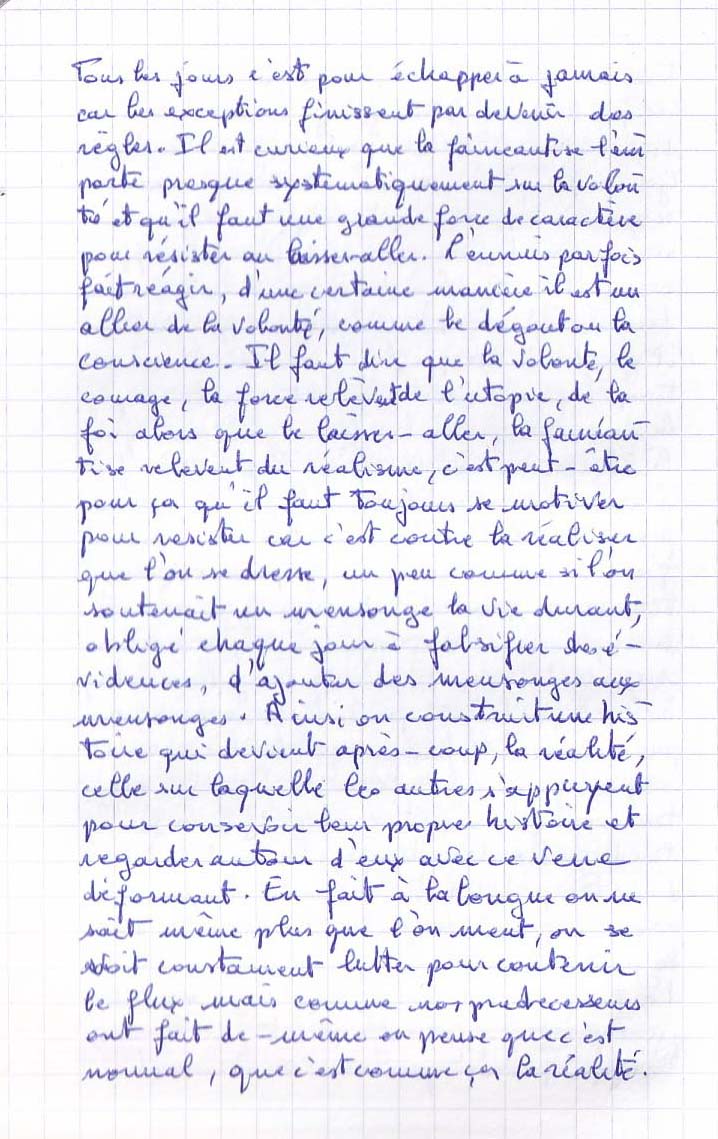 Tous les jours c'est pour échapper à jamais
car les exceptions finissent par devenir des
règles. Il est curieux que la fainéantise l'em
porte presque systématiquement sur la volon
té et qu'il faut une grande force de caractère
pour résister au laisser-aller. L'ennuis parfois
fait réagir, d'une certaine manière il est un
allier de la volonté, comme le dégout ou la
conscience. Il faut dire que la volonté, le
courage, la force relèvent de l'utopie, de la
foi alors que le laisser-aller, la fainéan
tise relevent du réalisme, c'est peut-être
pour ça qu'il faut toujours se motiver
pour resister car c'est contre la réaliser
que l'on se dresse, un peu comme si l'on
soutenait un mensonge la vie durant,
obligé chaque jour à falsifier des é-
vidences, d'ajouter des mensonges aux
mensonges. Ainsi on construit une his
toire qui devient après-coup, la réalité,
celle sur laquelle les autres s'appuyent
pour conserver leur propres histoire et
regarder autour d'eux avec ce verre
déformant. En fait à la longue on ne
sait même plus que l'on ment, on se
doit constament lutter pour contenir
le flux mais comme nos predecesseurs
ont fait de-même on pense que c'est
normal, que c'est comme ça la réalité.